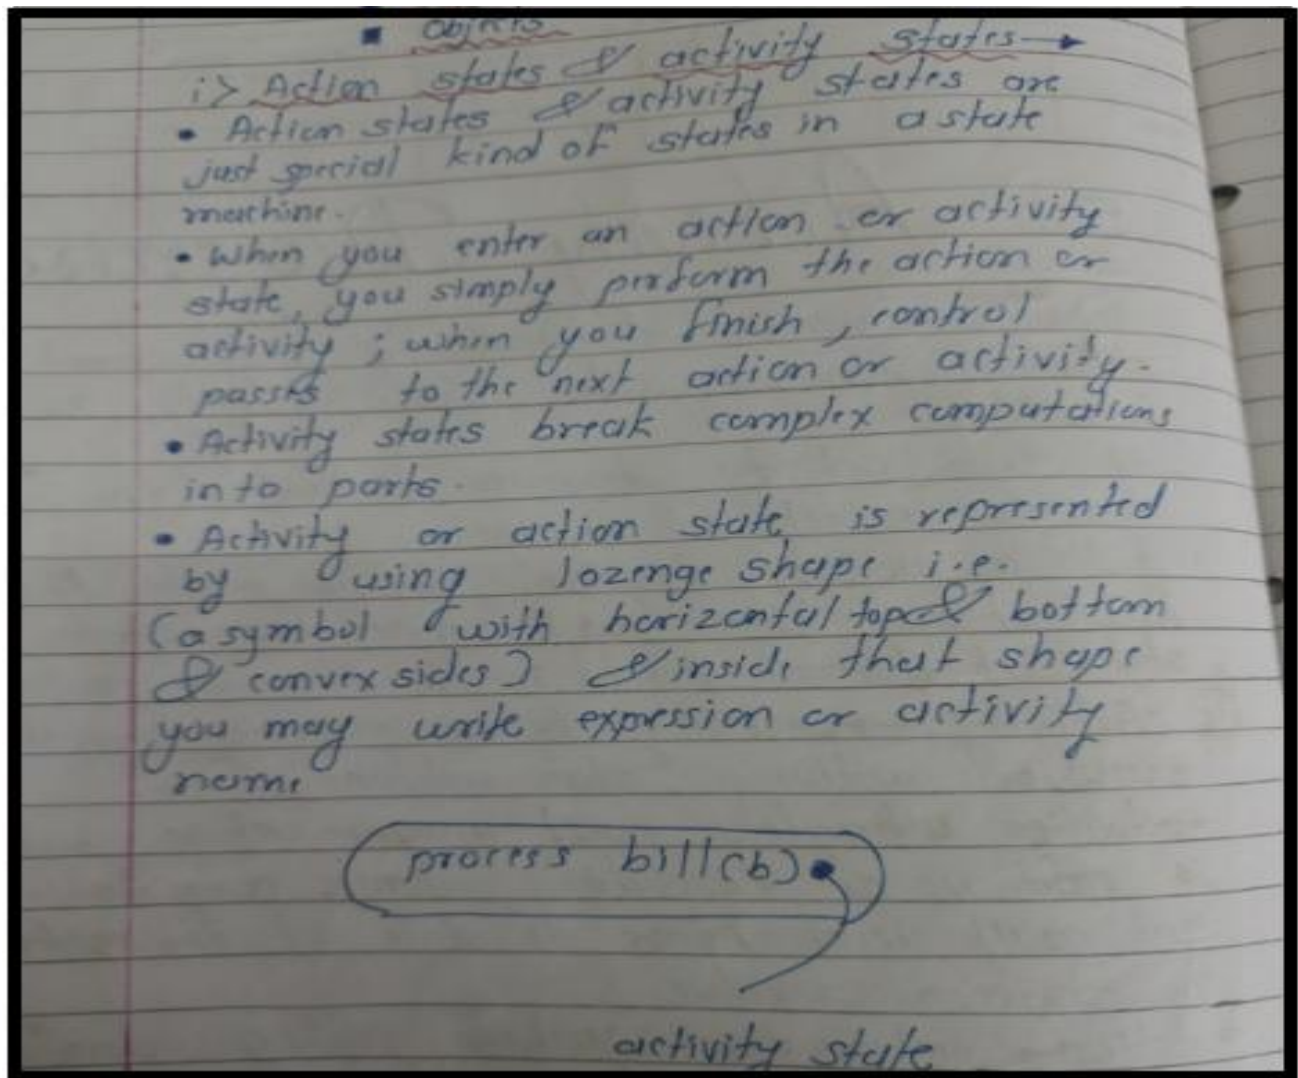 ▪ Objects
i> Action states & activity states →
• Action states & activity states are
just special kind of states in a state
machine.
• When you enter an action or activity
state, you simply perform the action or
activity ; when you finish, control
passes to the next action or activity.
• Activity states break complex computations
into parts.
• Activity or action state is represented
by using lozenge shape i.e.
(a symbol with horizontal top & bottom
& convex sides) & inside that shape
you may write expression or activity
name
process bill(b)
activity state